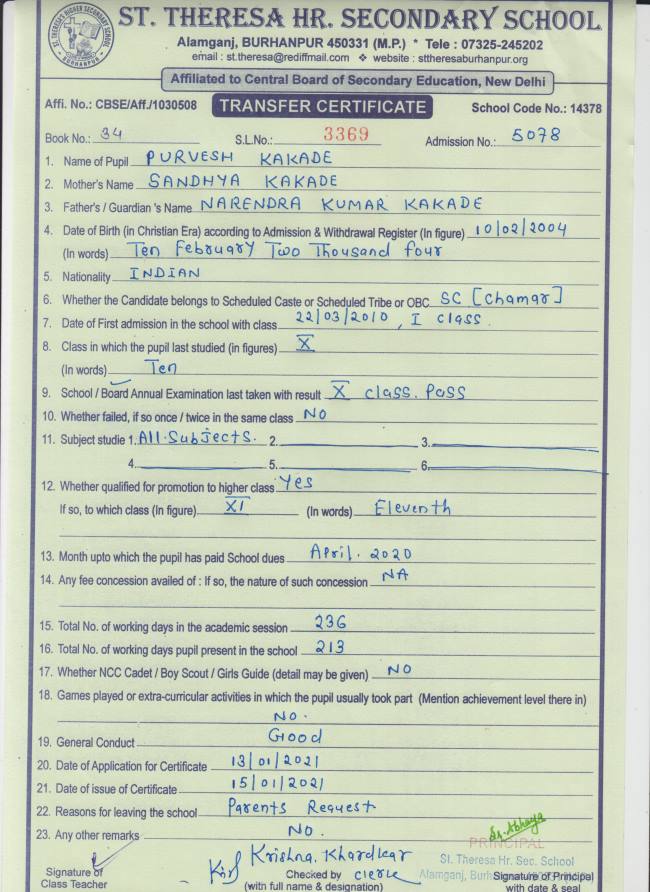 ST. THERESA HR. SECONDARY SCHOOL
ST. THERESA'S HIGHER SECONDARY SCHOOL
BURHANPUR
Alamganj, BURHANPUR 450331 (M.P.) * Tele : 07325-245202
email : st.theresa@rediffmail.com ❖ website : sttheresaburhanpur.org
Affiliated to Central Board of Secondary Education, New Delhi
Affi. No.: CBSE/Aff./1030508 TRANSFER CERTIFICATE School Code No.: 14378
Book No.: 34 S.L.No.: 3369 Admission No.: 5078
1. Name of Pupil PURVESH KAKADE
2. Mother's Name SANDHYA KAKADE
3. Father's / Guardian 's Name NARENDRA KUMAR KAKADE
4. Date of Birth (in Christian Era) according to Admission & Withdrawal Register (In figure) 10/02/2004
(In words) Ten February Two Thousand four
5. Nationality INDIAN
6. Whether the Candidate belongs to Scheduled Caste or Scheduled Tribe or OBC SC [Chamar]
7. Date of First admission in the school with class 22/03/2010, I class
8. Class in which the pupil last studied (in figures) X
(In words) Ten
9. School / Board Annual Examination last taken with result X class. Pass
10. Whether failed, if so once / twice in the same class NO
11. Subject studie 1. All. Subjects. 2. 3.
4. 5. 6.
12. Whether qualified for promotion to higher class Yes
If so, to which class (In figure) XI (In words) Eleventh
13. Month upto which the pupil has paid School dues April. 2020
14. Any fee concession availed of : If so, the nature of such concession NA
15. Total No. of working days in the academic session 236
16. Total No. of working days pupil present in the school 213
17. Whether NCC Cadet / Boy Scout / Girls Guide (detail may be given) NO
18. Games played or extra-curricular activities in which the pupil usually took part (Mention achievement level there in)
NO.
19. General Conduct Good
20. Date of Application for Certificate 13/01/2021
21. Date of issue of Certificate 15/01/2021
22. Reasons for leaving the school Parents Request
23. Any other remarks NO.
Sr. Abhaya
PRINCIPAL
St. Theresa Hr. Sec. School
Krishna. Khardkar
Signature of Checked by clerk Signature of Principal
Class Teacher (with full name & designation) with date & seal